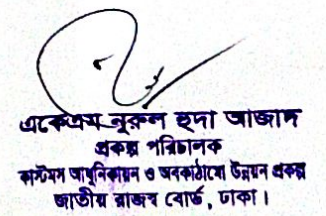 একেএম নূরুল হুদা আজাদ
প্রকল্প পরিচালক
কাস্টমস আধুনিকায়ন ও অবকাঠামো উন্নয়ন প্রকল্প
জাতীয় রাজস্ব বোর্ড, ঢাকা।